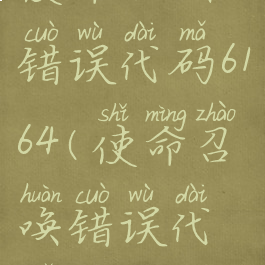 cuò wù dài mǎ
错误代码61
shǐ mìng zhào
64(使命召
huàn cuò wù dài
唤错误代